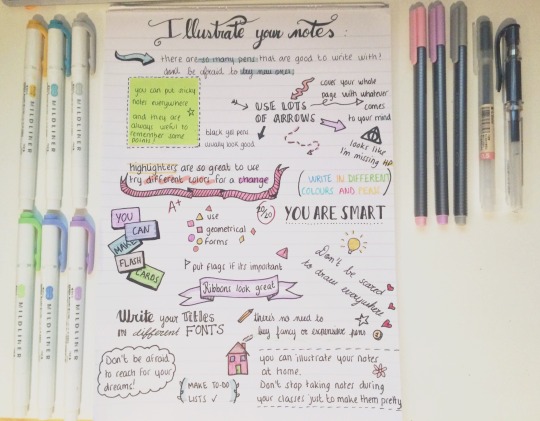 Illustrate your notes :
there are so many pens that are good to write with!
don't be afraid to try new ones.
you can put sticky
notes everywhere
and they are
always useful to
remember some
points!
cover your whole
page with whatever
comes
to your mind
USE LOTS
OF ARROWS
black gel pens
usually look good
looks like
I'm missing HP
highlighters are so great to use
try different colors for a change
(WRITE IN DIFFERENT
COLOURS AND PENS)
A+
20/20
YOU ARE SMART
YOU
CAN
MAKE
FLASH
CARDS
use
geometrical
forms
Don't be scared
to draw everywhere
put flags if its important
Ribbons look great
Write your Titles
in different FONTS
there's no need to
buy fancy or expensive pens
Don't be afraid
to reach for your
dreams!
MAKE TO-DO
LISTS ✓
you can illustrate your notes
at home.
Don't stop taking notes during
your classes just to make them pretty
MILDLINER
MILDLINER
MILDLINER
MILDLINER
MILDLINER